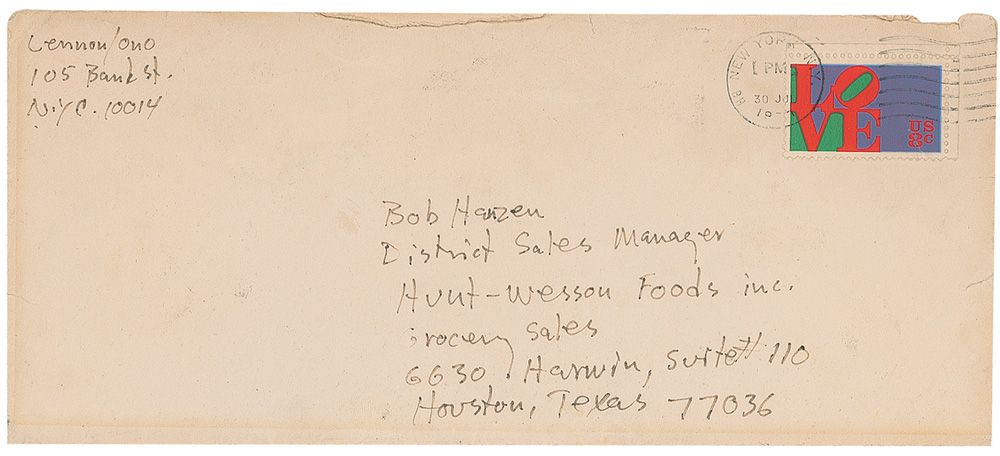 Lennon/Ono
105 Bank st.
N.Y.C. 10014
NEW YORK, N.Y.
PM
30 JU
19
LOVE
US
8c
Bob Hanzen
District Sales Manager
Hunt-Wesson Foods inc.
Grocery Sales
6630 Harwin, Suite# 110
Houston, Texas 77036